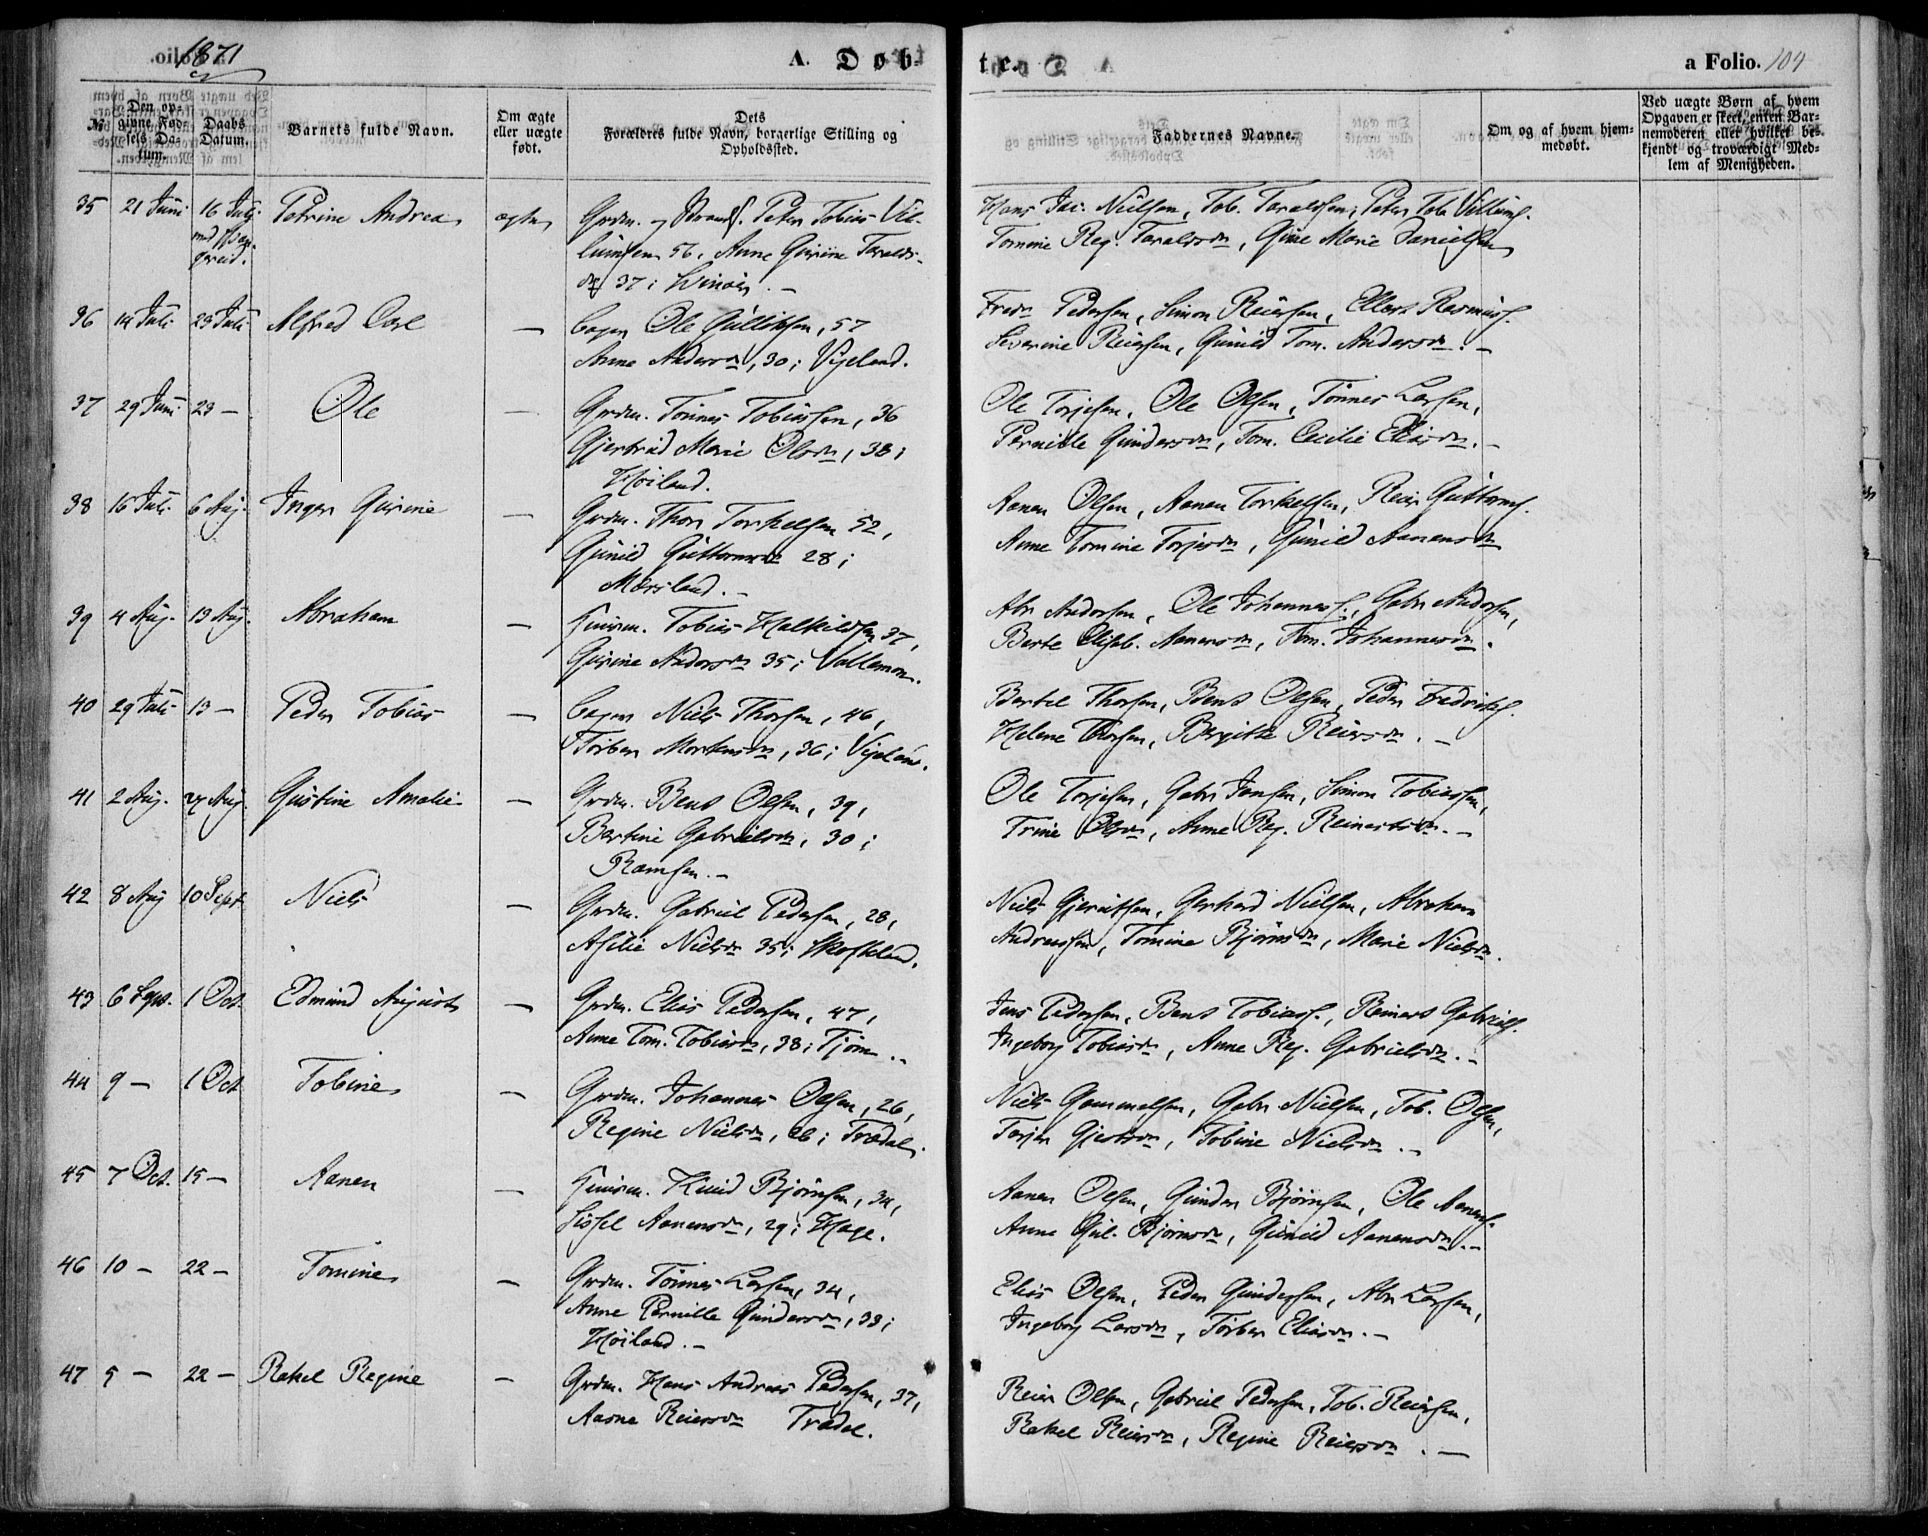 1871
A. Døb-
te.
a Folio. 104
№
Den opgivne Fødsels Datum.
Daabs Datum.
Barnets fulde Navn.
Om ægte eller uægte født.
Dets Forældres fulde Navn, borgerlige Stilling og Opholdssted.
Faddernes Navne.
Om og af hvem hjemmedøbt.
Ved uægte Børn af hvem Opgaven er skeet, enten Barnemoderen eller hvilket bekjendt og troværdigt Medlem af Menigheden.
35 21 Juni 16 Juli Petrine Andrea ægte Grdm. Peter Tobias Vil-
56, Anne Gurine Taralds-
dtr 37;
Hans Jac. Nielsen, Tob. Taraldsen, Peter Tob. Villums.
Tomine Reg. Taraldsdn, Gine Marie Danielsen
36 14 Juli 23 Juli Alfred Carl — Ole Gullichsen, 57
Anne Andersdn, 30; Vigeland.
Fredr Pedersen, Simon Reiersen, Ellert Rasmus.
Severine Reiersen, Gunild Tom. Andersdn. —
37 29 Juni 23 — Ole — Grdm. Tønnes Tobiassen, 36
Gjertrud Marie Olsdn, 38;
Høiland.
Ole Torjesen, Ole Olsen, Tønnes Larsen,
Pernille Gundersdn, Tom. Cecilie Eliasdn. —
38 16 Juli 6 Aug. Inger Gurine — Grdm. Thor Torkelsen 52,
Gunild Guttormsdn 28;
Mærsland. —
Aanen Olsen, Aanen Torkelsen, Reier Guttorms.
Anne Tomine Torjesdn, Gunild Aanensdn
39 4 Aug. 13 Aug. Abraham — Huusm. Tobias Halkildsen 37,
Gurine Andersdn 35; Vallemoen.
Abr Andersen, Ole Johannes., Gabr Andersen,
Berte Elisab. Aanensdn, Tom. Johannesdn.
40 29 Juli 13 — Peder Tobias — Niels Thorsen, 46,
Torber Mortensdn, 36; Vigeland.
Bertel Thorsen, Bent Olsen, Peder Fredriks.
Helene Thorsen, Birgitte Reiersdn. —
41 2 Aug. 27 Aug Gustine Amalie — Grdm. Bent Olsen, 39,
Bertine Gabrielsdn, 30;
Ramsen. —
Ole Torjesen, Gabr Jensen, Simon Tobiassen,
Trine Olsdn, Anne Reg. Reinertsdn. —
42 8 Aug 10 Sept. Niels — Grdm. Gabriel Pedersen, 28,
Asilie Nielsdn 35;
Niels Gjeruldsen, Gerhard Nielsen, Abraham
Andreassen, Tomine Bjørnsdn, Marie Nielsdn.
43 6 Sept. 1 Oct. Edmund August — Grdm. Elias Pedersen, 47,
Anne Tom. Tobiasdn, 38; Tjøm. —
Jens Pedersen, Bent Tobias., Reinert Gabriels.
Ingeborg Tobiasdn, Anne Reg. Gabrielsdn. —
44 9 — 1 Oct Tobine — Grdm. Johannes Olsen, 26,
Regine Nielsdn, 26; Trædal.
Niels Gammelsen, Gabr Nielsen, Tob. Olsen,
Torjer Gjertsdn, Tobine Nielsdn. —
45 7 Oct. 15 — Aanen — Huusm. Bjørnsen, 34,
Sissel Aanensdn, 29; Hage.
Aanen Olsen, Gunder Bjørnsen, Ole Aanens.
Anne Gul. Bjørnsdn, Gunild Aanensdn. —
46 10 — 22 — Tomine — Grdm. Tønnes Larsen, 34,
Anne Pernille Gundersdn, 33;
Høiland. —
Elias Olsen, Peder Gundersen, Abr Larsen,
Ingeborg Larsdn, Torber Eliasdn. —
47 5 — 22 — Rakel Regine — Grdm. Hans Andreas Pedersen, 37,
Aasne Reiersdn Trædal.
Reier Olsen, Gabriel Pedersen, Tob. Reiersen,
Rakel Reiersdn, Regine Reiersdn. —